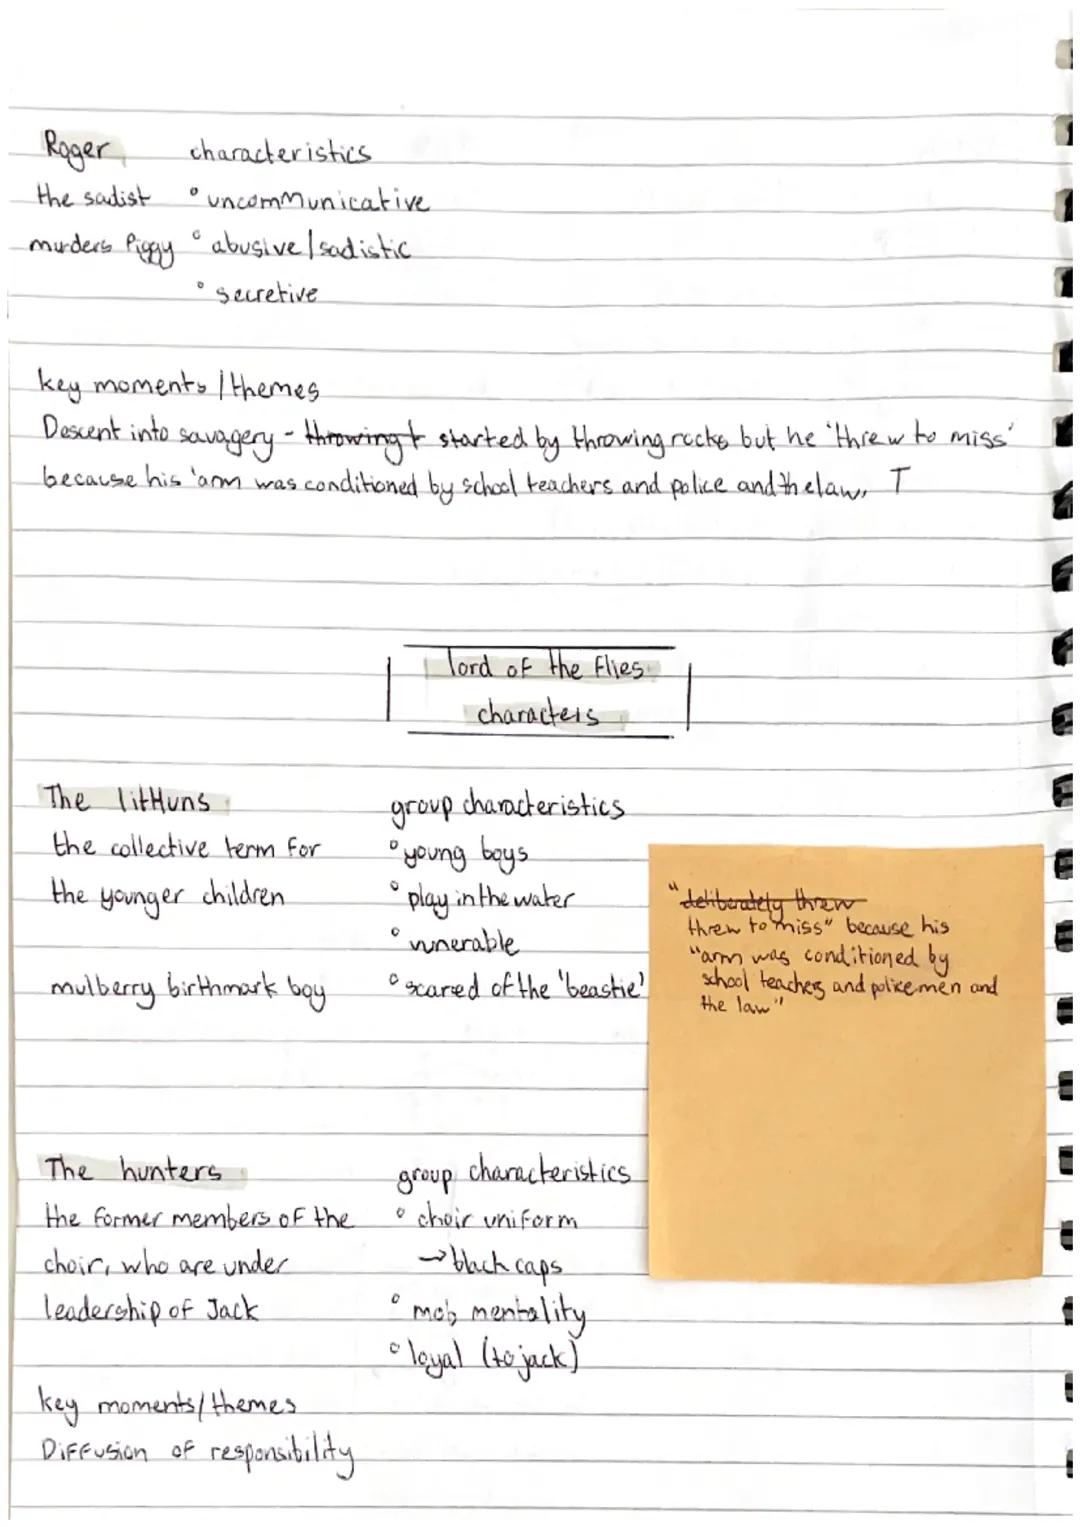 Roger characteristics
the sadist ° uncommunicative
murders Piggy ° abusive/sadistic
° secretive
key moments/themes
Descent into savagery - throwing t started by throwing rocks but he 'threw to miss'
because his 'arm was conditioned by school teachers and police and the law, T
lord of the flies
characters
The littluns group characteristics
the collective term for ° young boys
the younger children ° play in the water
° vunerable
mulberry birthmark boy ° scared of the 'beastie'
"deliberately threw
threw to miss" because his
"arm was conditioned by
school teachers and policemen and
the law"
The hunters group characteristics
the former members of the ° choir uniform
choir, who are under → black caps
leadership of Jack ° mob mentality
° loyal (to jack)
key moments/themes
Diffusion of responsibility